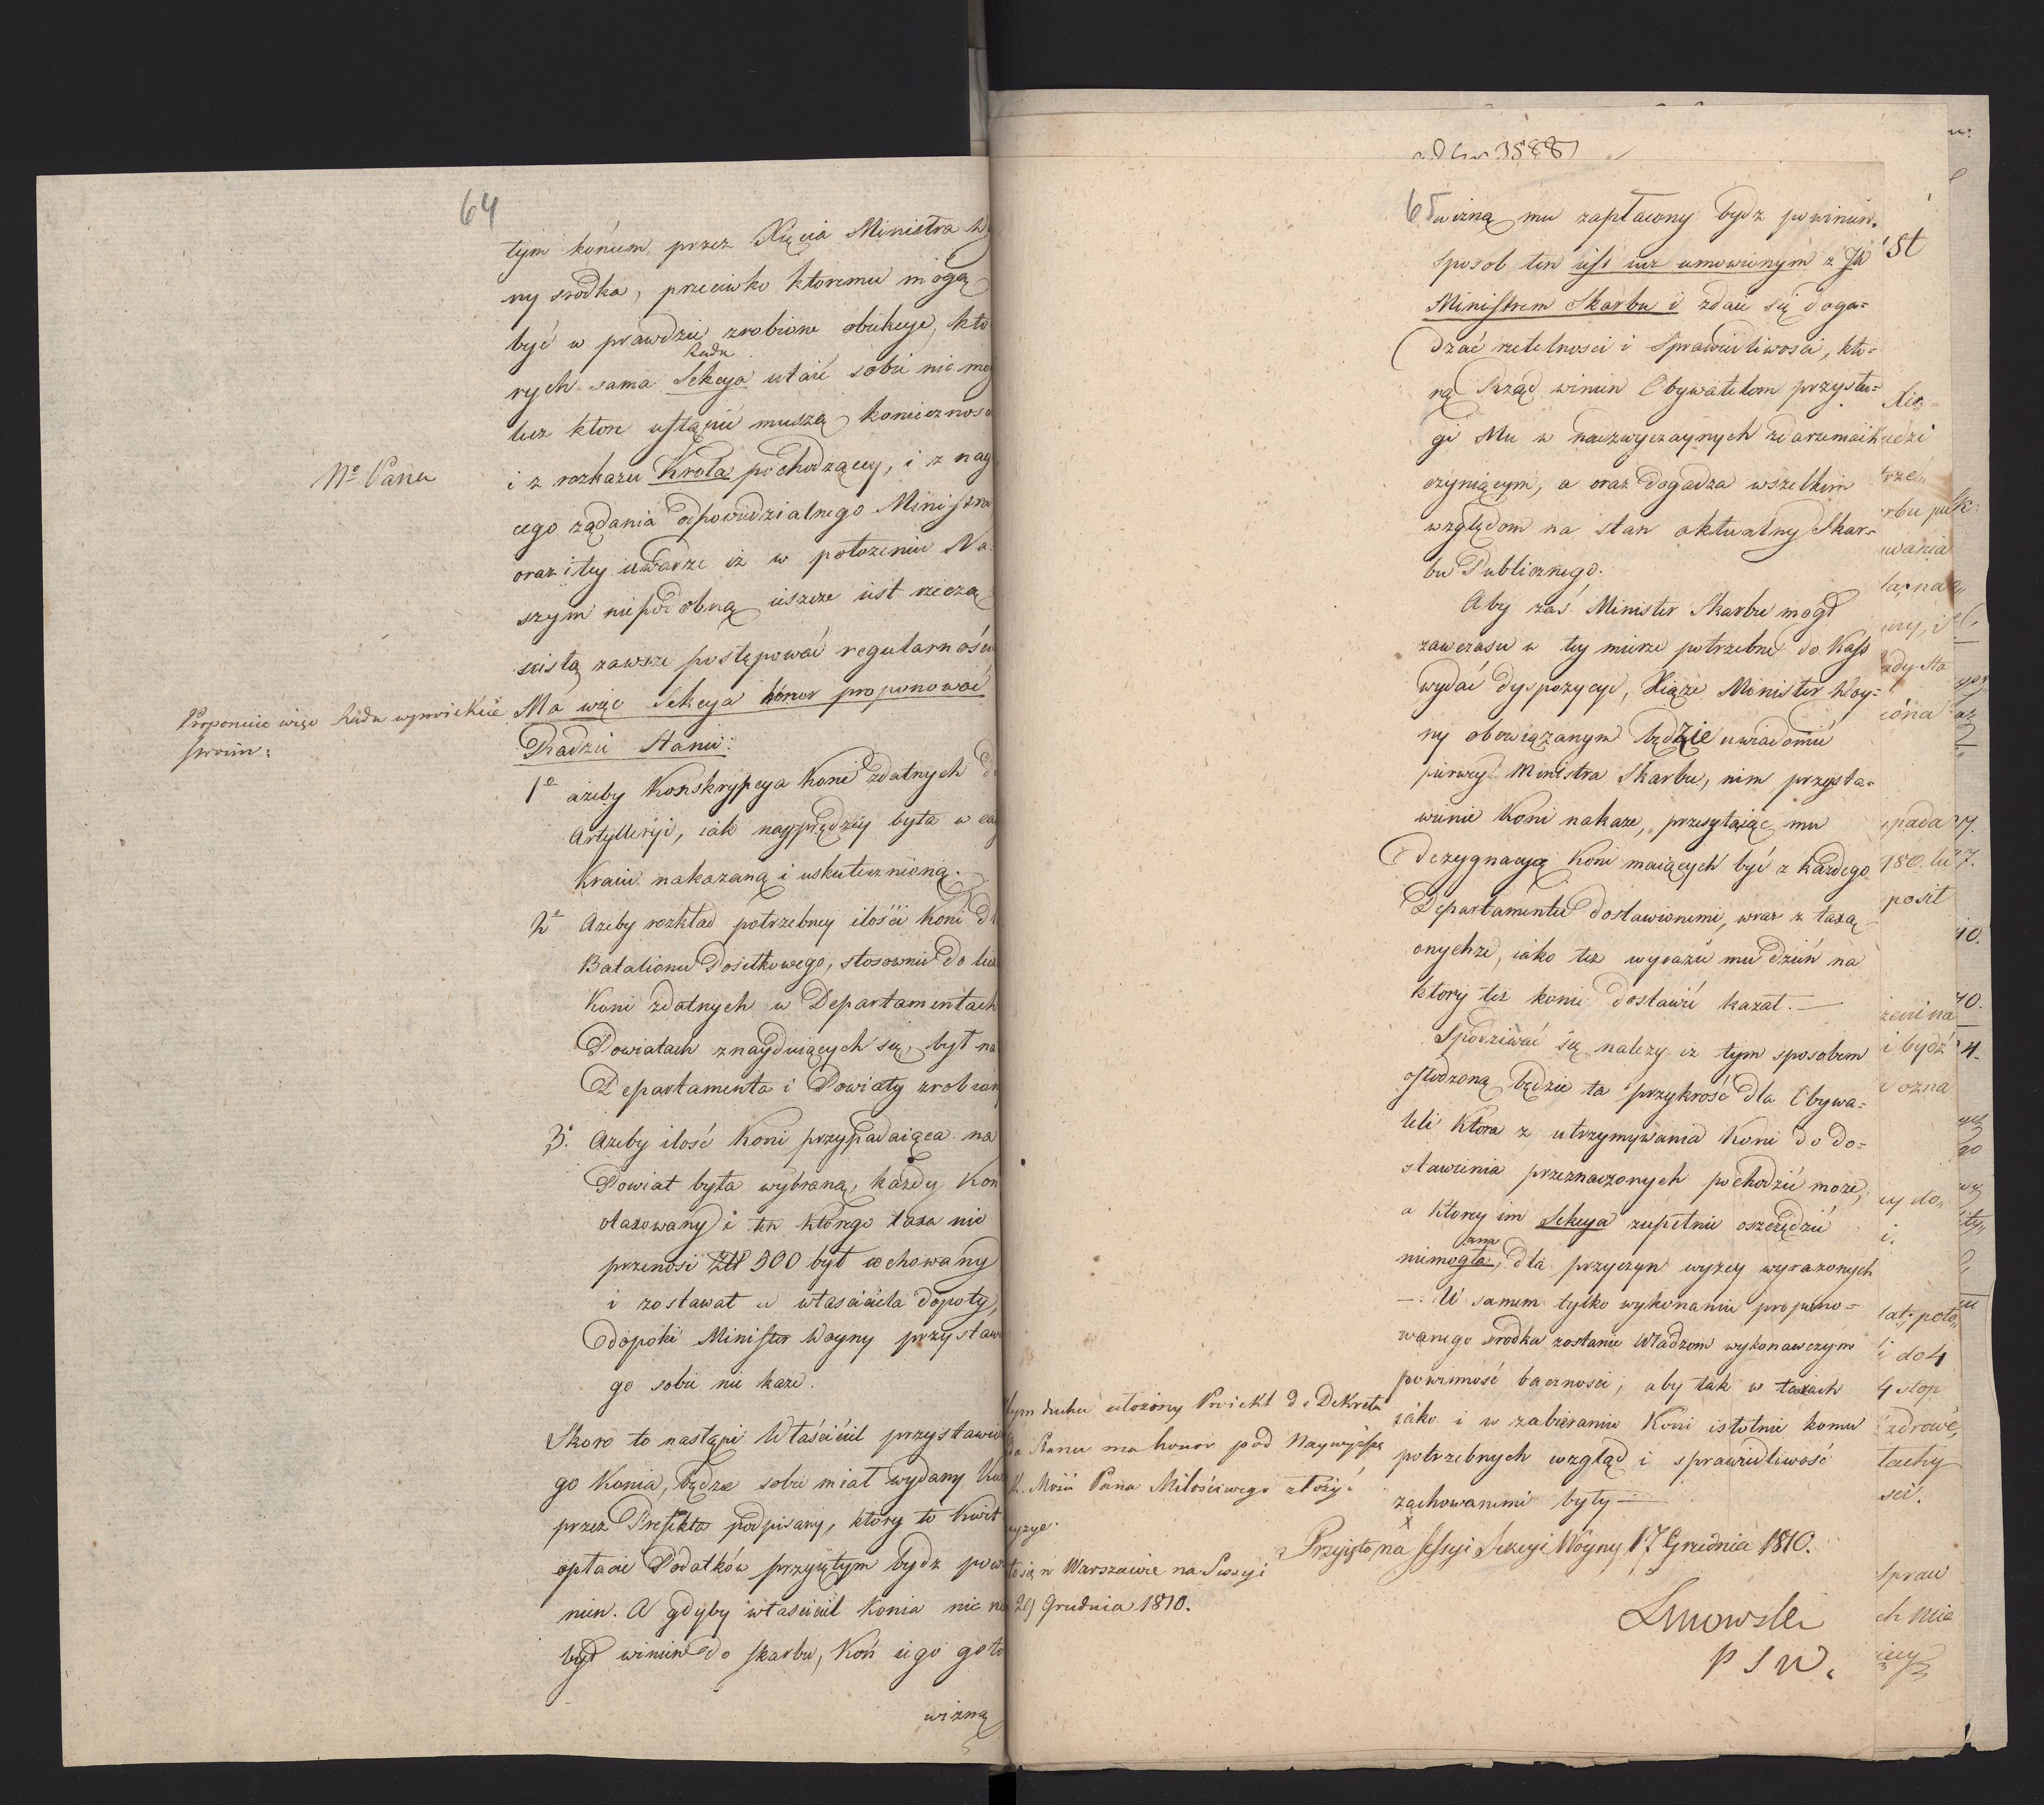 64
tym końcem, przez Xięcia Ministra
ny srodka, przeciwko ktoremu mogą
być w prawdzie zrobione obiekcye, kto
Rada
rych sama Sekcya utaić sobie nie mo
lecz ktore ustąpić muszą konieczności
Nº Pana
i z rozkazu Krola pochodzącey, i z nag
cego ządania odpowiedzialnego Ministra
oraz i tey uwadze iz w położeniu Na
szym niepodobną ieszcze iest rzeczą
scisłą zawsze postępować regularnością
Proponuie więc Rada wyrokiem
swoim:
Ma więc Sekcya honor proponować
Radzie Stanu:
1º ażeby Konskrypcya Koni zdatnych d
Artylleryi, iak nayprędzey była w ca
Kraiu nakazaną i uskutecznioną.
2º Azeby rozkład potrzebney ilości Koni d
Batalionu Posiłkowego, stosownie do licz
Koni zdatnych w Departamentach
Powiatach znayduiących się, był na
Departamenta i Powiaty zrobion
3º Azeby ilość Koni przypadaiąca na
Powiat była wybraną, każdy Kon
otaxowany i ten ktorego taxa nie
przenosi Zł 500 był cechowany
i zostawał u własciciela dopoty,
dopoki Minister Woyny przystaw
go sobie nie każe.
Skoro to nastąpi Właściciel przystawio
go Konia, będzie sobie miał wydany Kw
przez Prefekta podpisany, ktory to Kwit
opłacie Podatków przyiętym bydz pow
nien. A gdyby własciciel Konia nic n
był winien do skarbu, Koń iego goto
wizną
65
wizną mu zapłacony bydz powinien.
Sposob ten iest iuz umowionym z JW
Ministrem Skarbu i zdaie się doga=
dzać rzetelnosci i Sprawiedliwosci, kto=
rą Rząd winien Obywatelom przysłu=
gi Mu w nadzwyczaynych zdarzeniach
czyniącym, a oraz dogadza wszelkim
względom na stan aktualny Skar=
bu Publicznego.
Aby zaś Minister Skarbu mogł
zawczasu w tey mierze potrzebne do Kass
wydać dyspozycye, Xiąże Minister Woy=
ny obowiązanym będzie uwiadomić
pierwey Ministra Skarbu, nim przysta=
wienie Koni nakaze, przesyłaiąc mu
dezygnacyą Koni maiących być z każdego
Departamentu dostawionemi, wraz z taxą
onychze, iako tez wyrazi mu dzień na
ktory tez konie dostawić kazał.—
Spodziwać się nalezy iz tym sposobem
osłodzoną będzie ta przykrość dla Obywa=
teli Ktora z utrzymywania Koni do do=
stawienia przeznaczonych pochodzić może,
a ktorey im Sekcya zupełnie oszczędzić
niemogła, dla przyczyn wyzey wyrazonych
—. W samem tylko wykonaniu propono=
wanego srodka zostanie Władzom wykonawczym
powinność bacznosci, aby tak w taxach
iako i w zabieraniu Koni istotnie komu
potrzebnych wzgląd i sprawiedliwość
zachowanemi były —
tym duchu ułożony Proiekt do Dekretu
da Stanu ma honor pod Naywyższą
K. Mości Pana Miłościwego złożyć
cyzye.
ło się w Warszawie na Sessyi
29 Grudnia 1810.
Przyięto na Sessyi Sekcyi Woyny 17 Grudnia 1810.
Linowski
P S W.